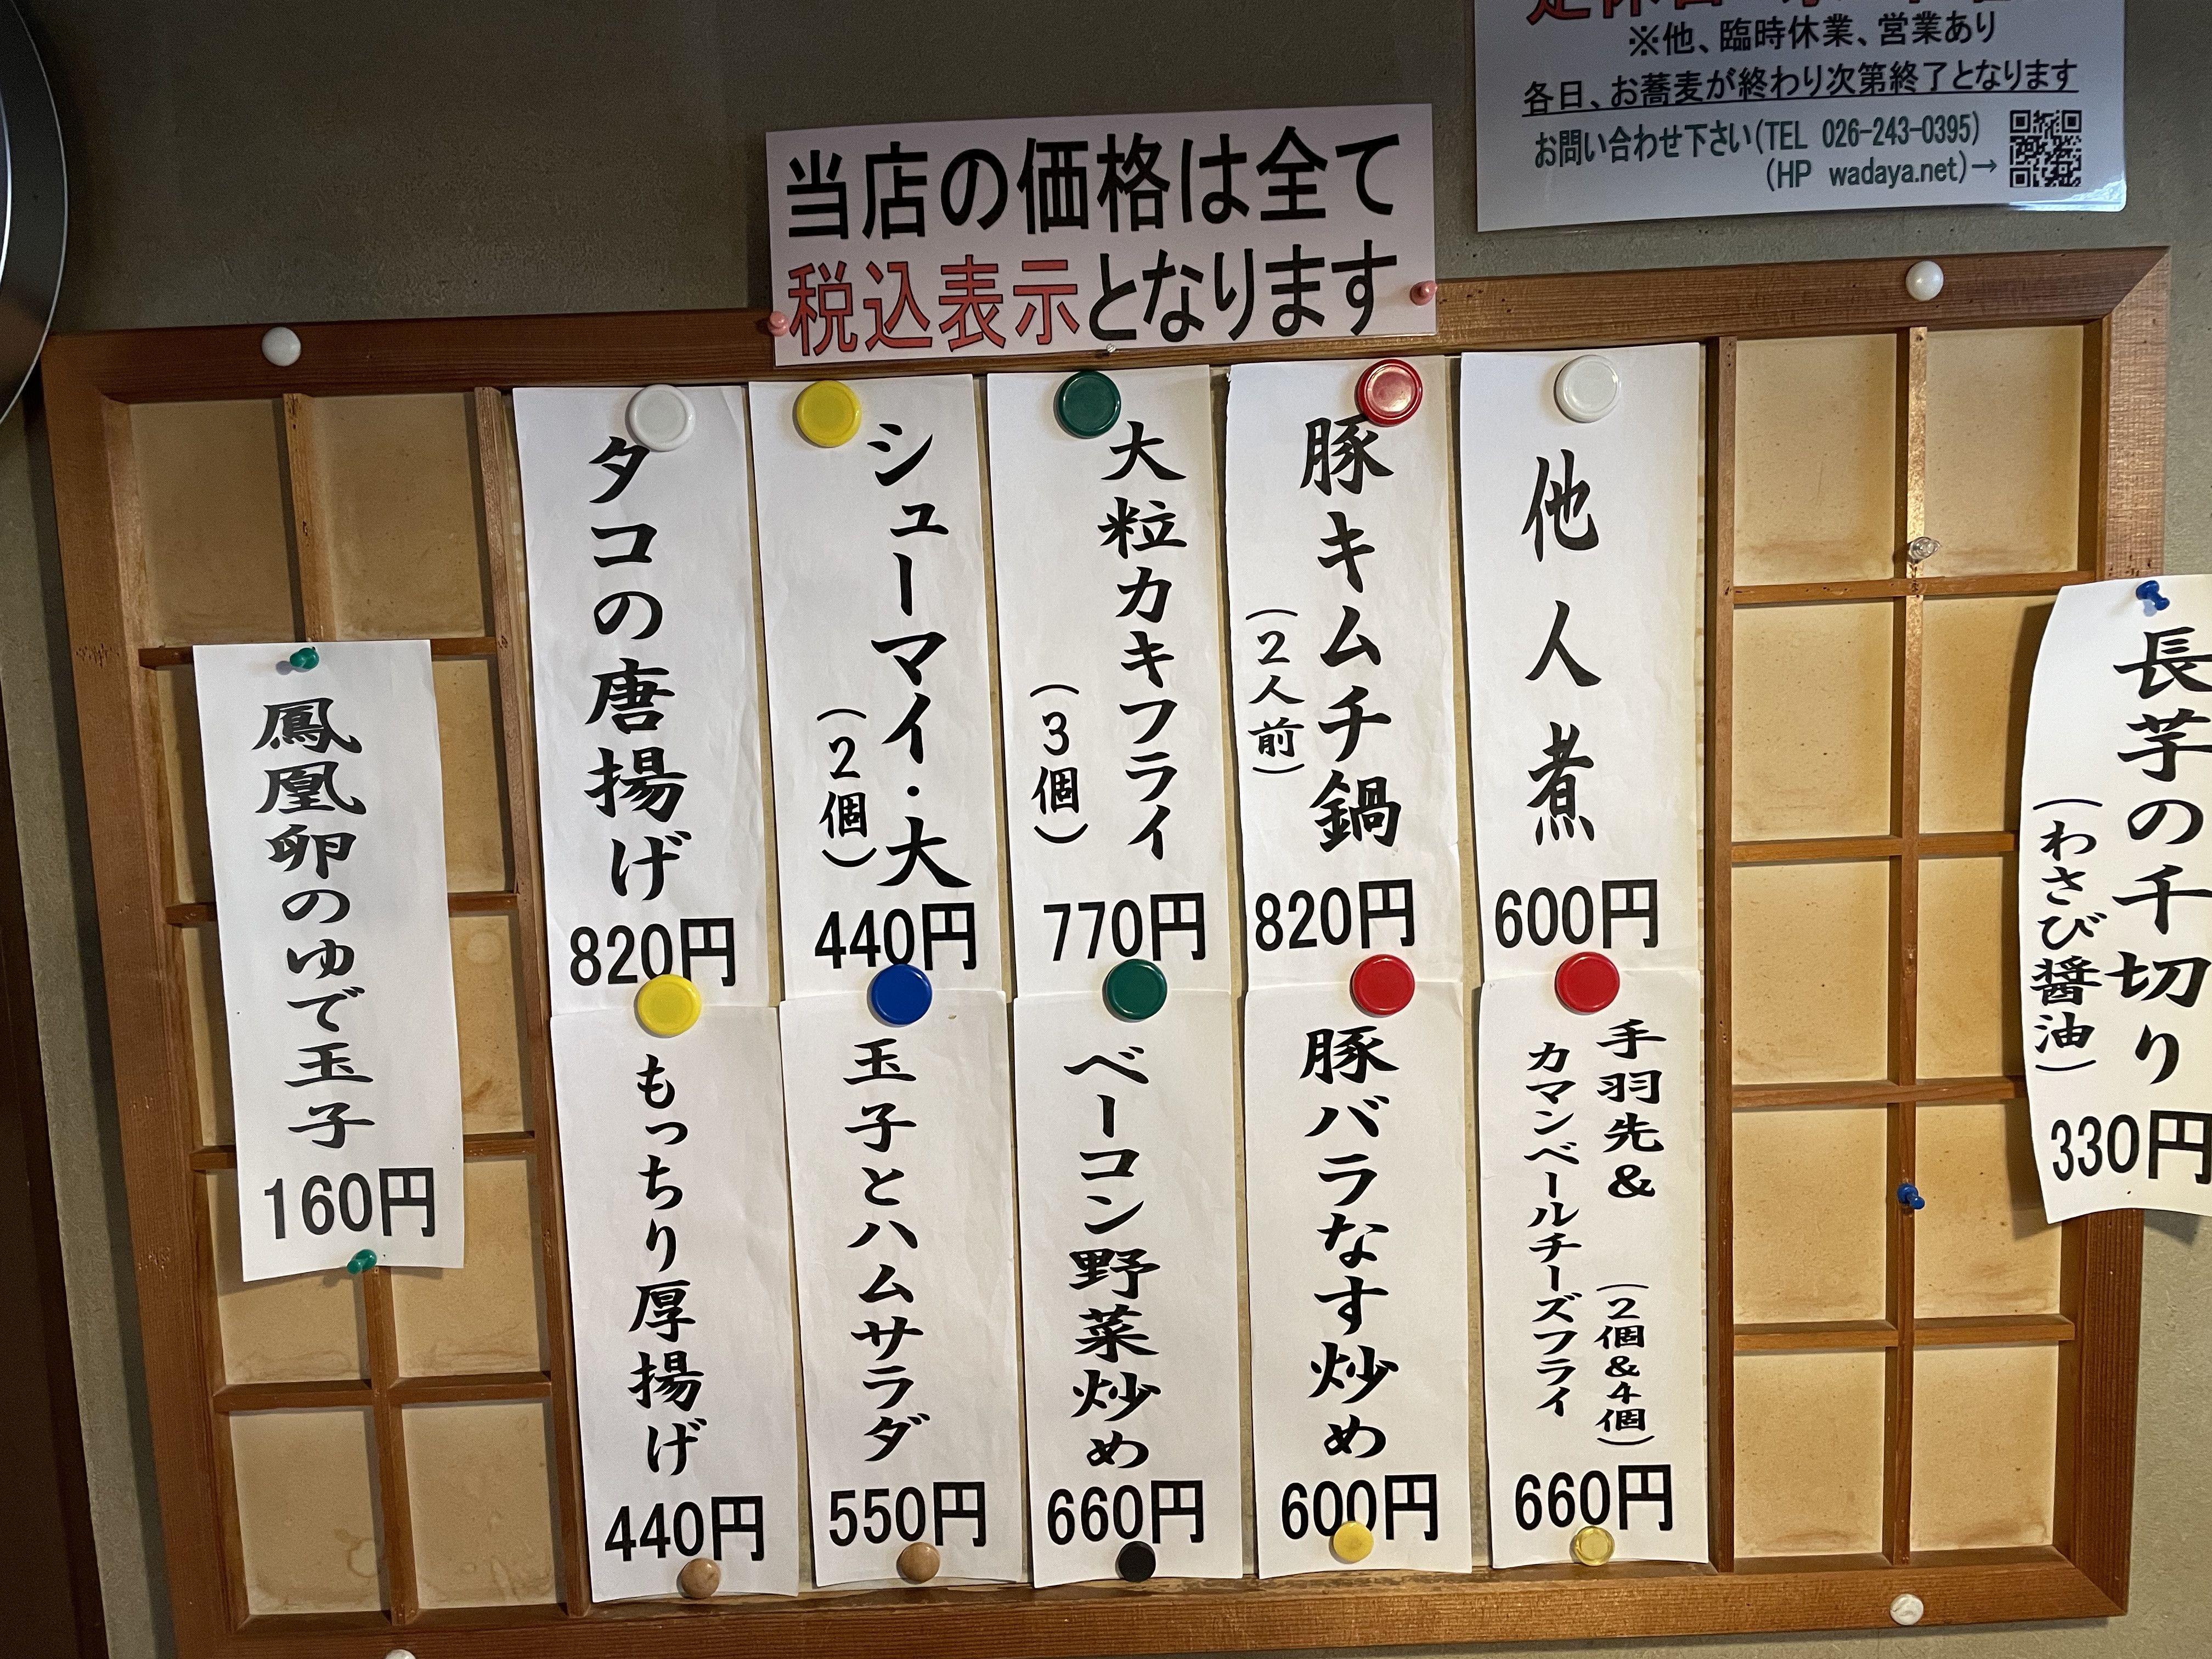 ※他、臨時休業、営業あり
各日、お蕎麦が終わり次第終了となります
お問い合わせ下さい(TEL 026-243-0395)
(HP wadaya.net)→
当店の価格は全て
税込表示となります
長芋の千切り
(わさび醤油)
330円
他人煮
600円
豚キムチ鍋
(2人前)
820円
大粒カキフライ
(3個)
770円
シューマイ・大
(2個)
440円
タコの唐揚げ
820円
手羽先&
(2個&4個)
カマンベールチーズフライ
660円
豚バラなす炒め
600円
ベーコン野菜炒め
660円
玉子とハムサラダ
550円
もっちり厚揚げ
440円
鳳凰卵のゆで玉子
160円